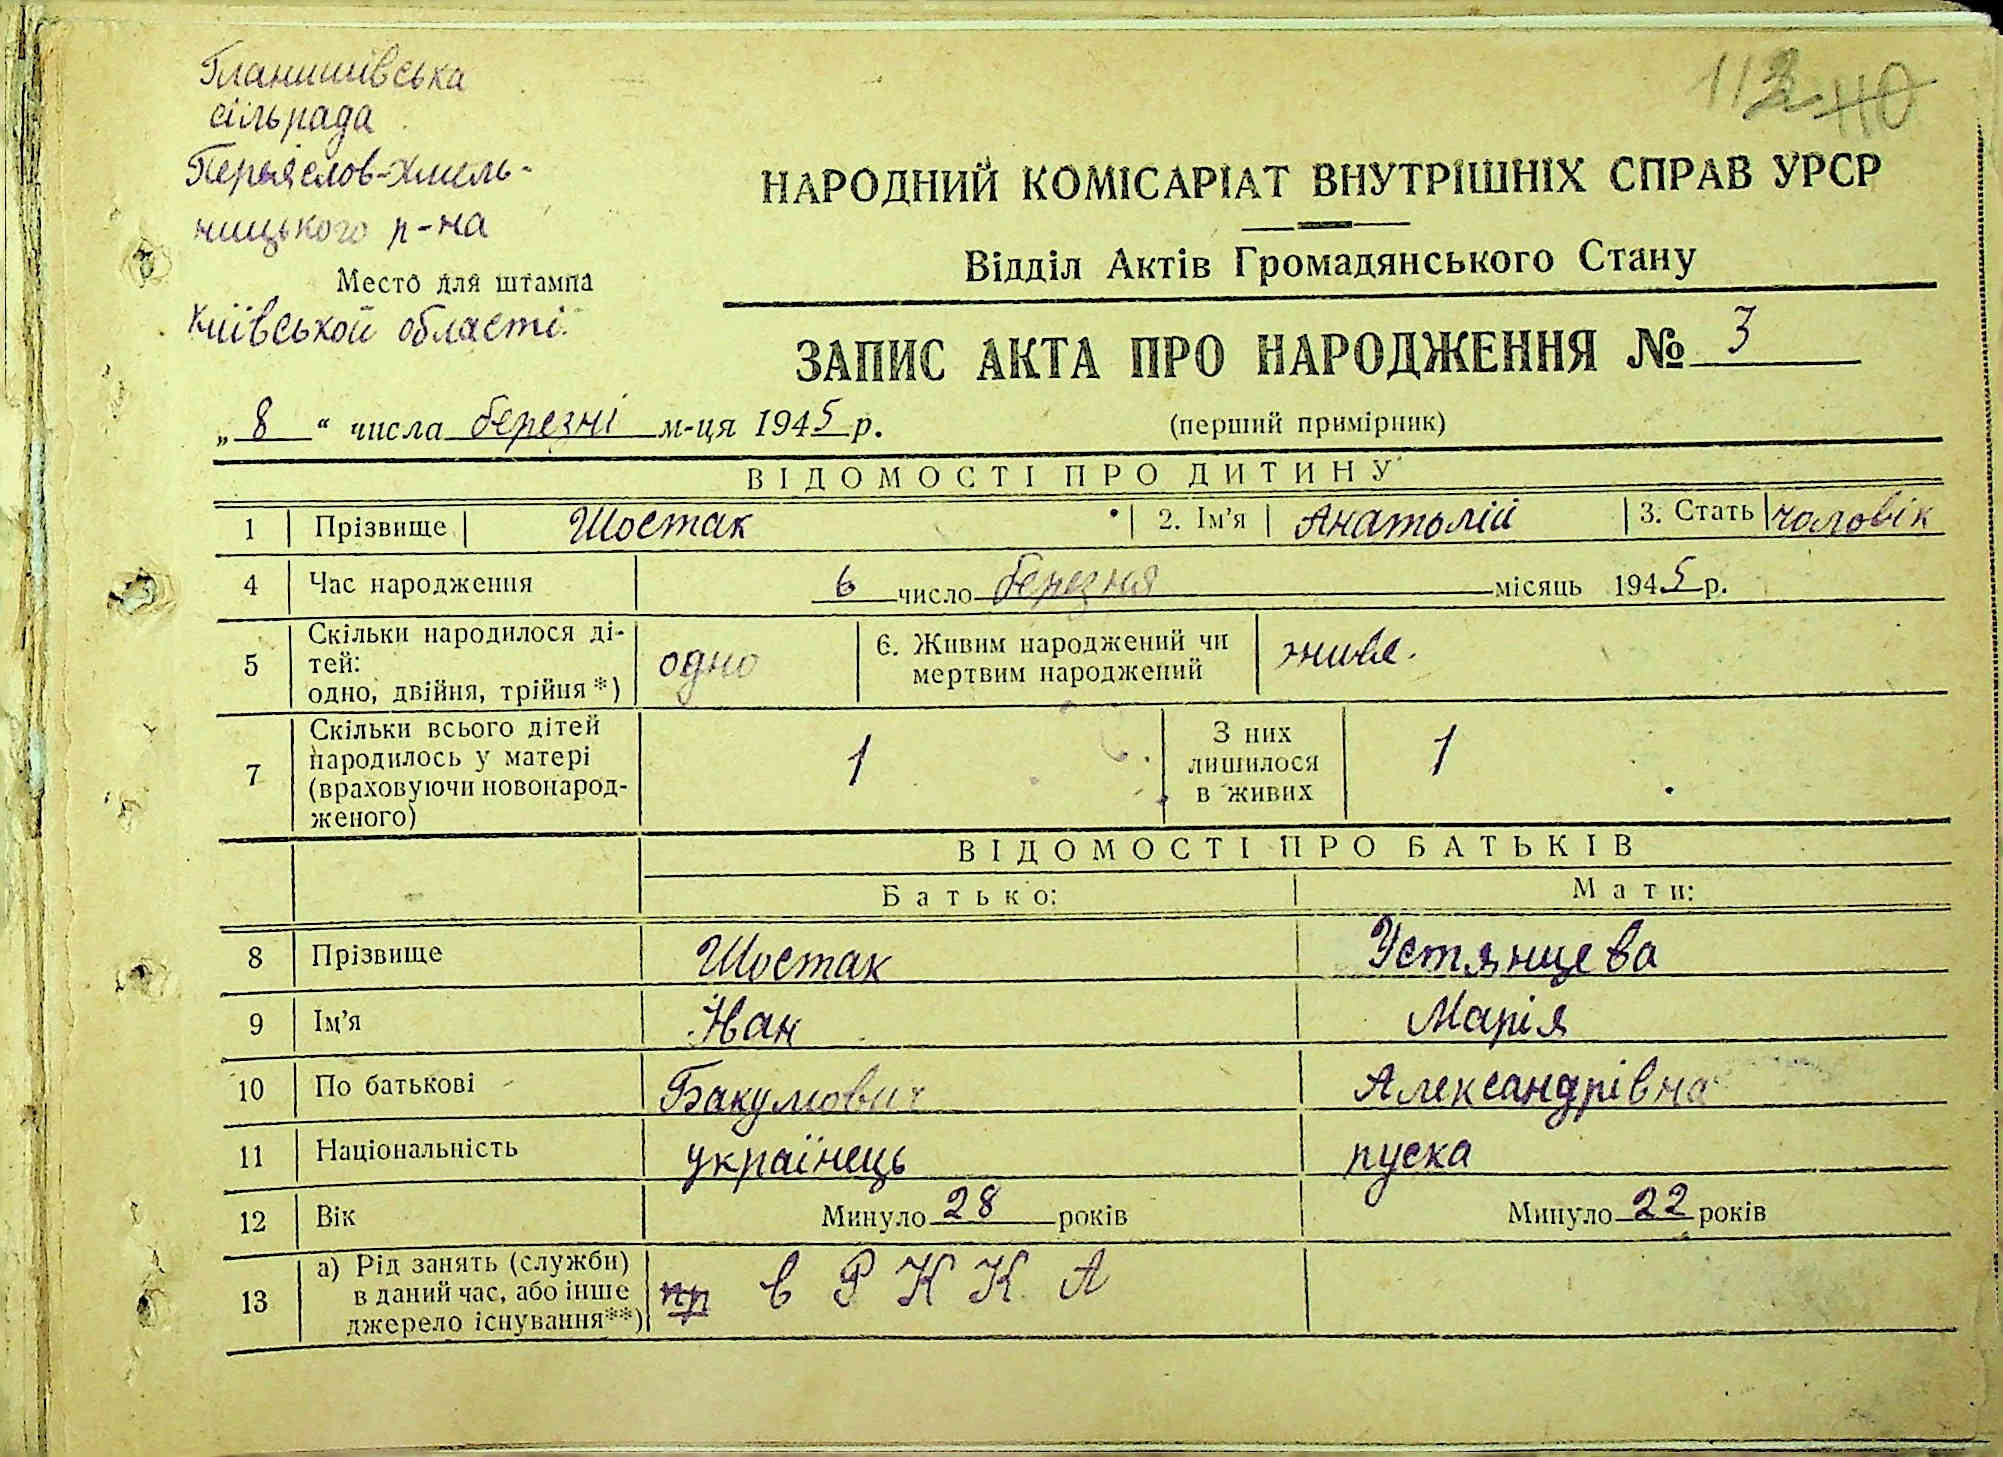 Гланишівська
сільрада
Переяслов-Хмель-
ницького р-на
Место для штампа
Київської області.
112 110
НАРОДНИЙ КОМІСАРІАТ ВНУТРІШНІХ СПРАВ УРСР
Відділ Актів Громадянського Стану
ЗАПИС АКТА ПРО НАРОДЖЕННЯ № 3
„ 8 “ числа березні м-ця 1945 р.
(перший примірник)
ВІДОМОСТІ ПРО ДИТИНУ
1 Прізвище Шостак 2. Ім’я Анатолій 3. Стать чоловік
4 Час народження 6 число березня місяць 1945 р.
5 Скільки народилося ді-
тей:
одно, двійня, трійня*) одно
6. Живим народжений чи
мертвим народжений живе.
7 Скільки всього дітей
народилось у матері
(враховуючи новонарод-
женого) 1
З них
лишилося
в живих 1
ВІДОМОСТІ ПРО БАТЬКІВ
Батько: Мати:
8 Прізвище Шостак Устянцева
9 Ім’я Іван Марія
10 По батькові Бакумович Александрівна
11 Національність українець руска
12 Вік Минуло 28 років Минуло 22 років
13 а) Рід занять (служби)
в даний час, або інше
джерело існування**) пр в Р К К А